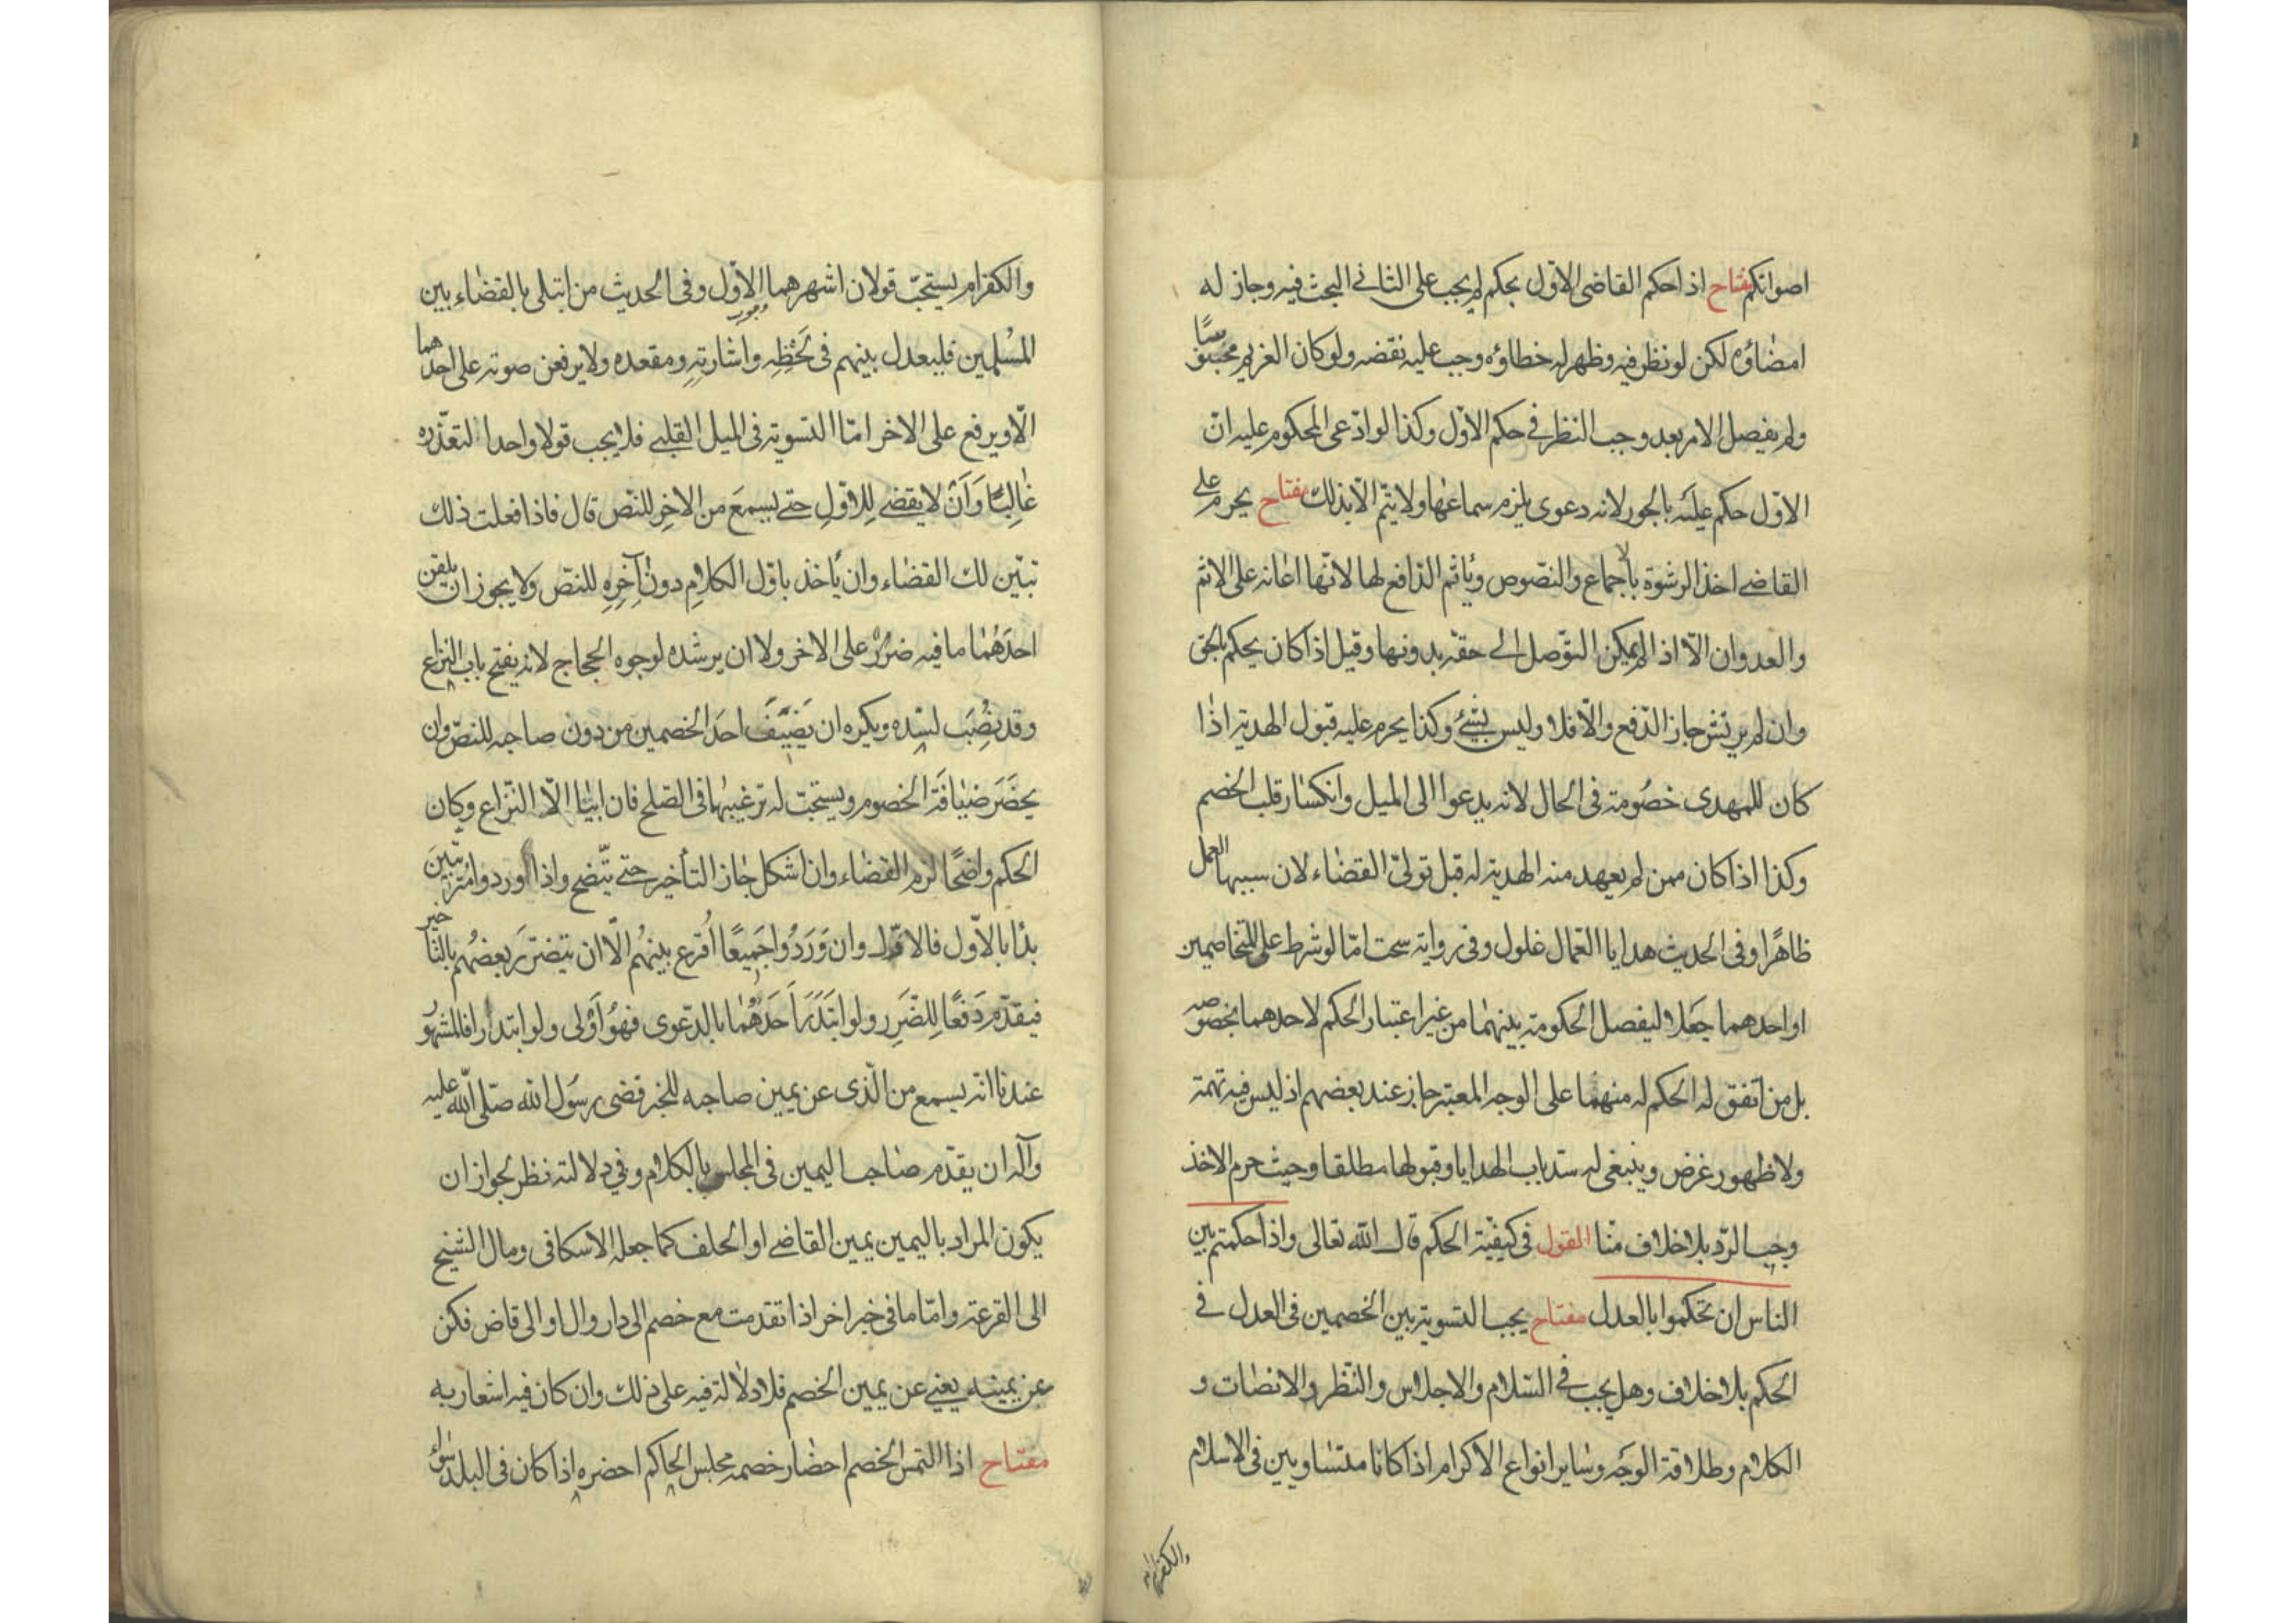 اصواتكم مفتاح اذا حكم القاضى الاوّل بحكم لم يجب على الثانى البحث فيه وجاز له
امضاؤه لكن لو نظر فيه وظهر له خطاؤه وجب عليه نقضه ولو كان الغريم محبوسًا
ولم يفصل الامر بعد وجب النظر فى حكم الاوّل وكذا لو ادّعى المحكوم عليه انّ
الاوّل حكم عليه بالجور لانه دعوى يلزم سماعها ولا يتمّ الّا بذلك مفتاح يحرم على
القاضى اخذ الرشوة بالاجماع والنصوص ويأثم الدّافع لها لانّها اعانة على الاثم
والعدوان الّا اذا لم يمكن التوّصل الى حقّه بدونها وقيل اذا كان يحكم بالحق
وان لم يرتش جاز الدّفع والّا فلا وليس بشئ وكذا يحرم عليه قبول الهدية اذا
كان للمهدى خصومة فى الحال لانه يدعوا الى الميل وانكسار قلب الخصم
وكذا اذا كان ممن لم يعهد منه الهدية له قبل تولىّ القضاء لان سببها العمل
ظاهرًا وفى الحديث هدايا العمّال غلول وفى رواية سحت امّا لو شرط على المتخاصمين
او احدهما جعلا ليفصل الحكومة بينهما من غير اعتبار الحكم لاحدهما بخصوصه
بل من اتفق له الحكم له منهما على الوجه المعتبر جاز عند بعضهم اذ ليس فيه تهمة
ولا ظهور غرض وينبغى له سدّ باب الهدايا وقبولها مطلقا وحيث حرم الاخذ
وجب الردّ بلا خلاف منّا القول فى كيفيّة الحكم قال الله تعالى واذا حكمتم بين
الناس ان تحكموا بالعدل مفتاح يجب التسوية بين الخصمين فى العدل فى
الحكم بلا خلاف وهل يجب فى السّلام والاجلاس والنّظر والانصات و
الكلام وطلاقة الوجه وساير انواع الاكرام اذا كانا متساويين فى الاسلام
والكفر ام
والكفر ام يستحبّ قولان اشهرهما الاوّل وفى الحديث من ابتلى بالقضاء بين
المسلمين فليعدل بينهم فى لحظه واشارته ومقعده ولا يرفعن صوته على احدهما
الّا ويرفع على الاخر امّا التسوية فى الميل القلبى فلا يجب قولا واحدا لتعذّره
غالبًا وَاَنْ لا يقضى لِلاوّلِ حتى يسمعَ من الاخِر للنّص قال فاذا فعلت ذلك
تبيّن لك القضاء وان يأخذ باوّل الكلامِ دون آخِرِه للنصّ ولا يجوز ان يلقن
احدَهُما ما فيه ضررٌ على الاخر ولا ان يرشده لوجوه الحجاج لانه يفتح باب النزاع
وقد نُصِبَ لسدّه ويكره ان يَضيّفَ احدَ الخصمين من دون صاحبه للنصّ وان
يحضَرَ ضيافَةَ الخصوم ويستحبّ له ترغيبهما فى الصّلح فان ابيا الّا النّزاع وكان
الحكم واضحًا لزم القضاء وان اشكل جاز التأخير حتى يتّضح واذا وردوا مترتّبينَ
بدأ بالاوّل فالاوّل وان وَرَدُوا جَميعًا اُقرع بينهُم الّا ان يتضرّرَ بعضُهم بالتاخير
فيقدّم دَفعًا لِلضّرَرِ ولو ابتَدَرَ اَحَدُهُما بالدّعوى فهوُ اَوْلى ولو ابتدرا فالمشهورُ
عندنا انّه يسمع من الّذى عن يمين صاحبه للخبر قضى رسُول الله صلّى الله عليه
وآله ان يقدّم صاحب اليمين فى المجلس بالكلام وفى دلالته نظر لجواز ان
يكون المراد باليمين يمين القاضى او الحلف كما جعله الاسكافى ومال الشيخ
الى القرعة وامّا ما فى خبر اخر اذا تقدمت مع خصم الى دار وال او الى قاض فكن
عن يمينه يعنى عن يمين الخصم فلا دلالة فيه على ذلك وان كان فيه اشعار به
مفتاح اذا التمس الخصم احضار خصمه مجلس الحاكم احضره اذا كان فى البلد سواء